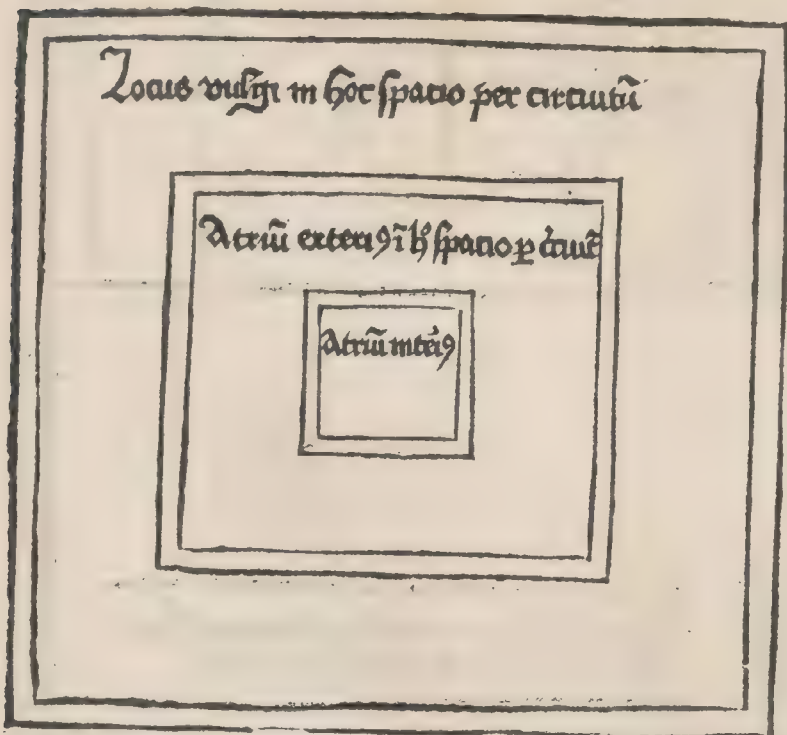 Locus vulgi in hoc spacio per circuitū
Atriū exteriꝰ ī hͦ spacio ꝑ ciͬcuitū
Atriū interiꝰ